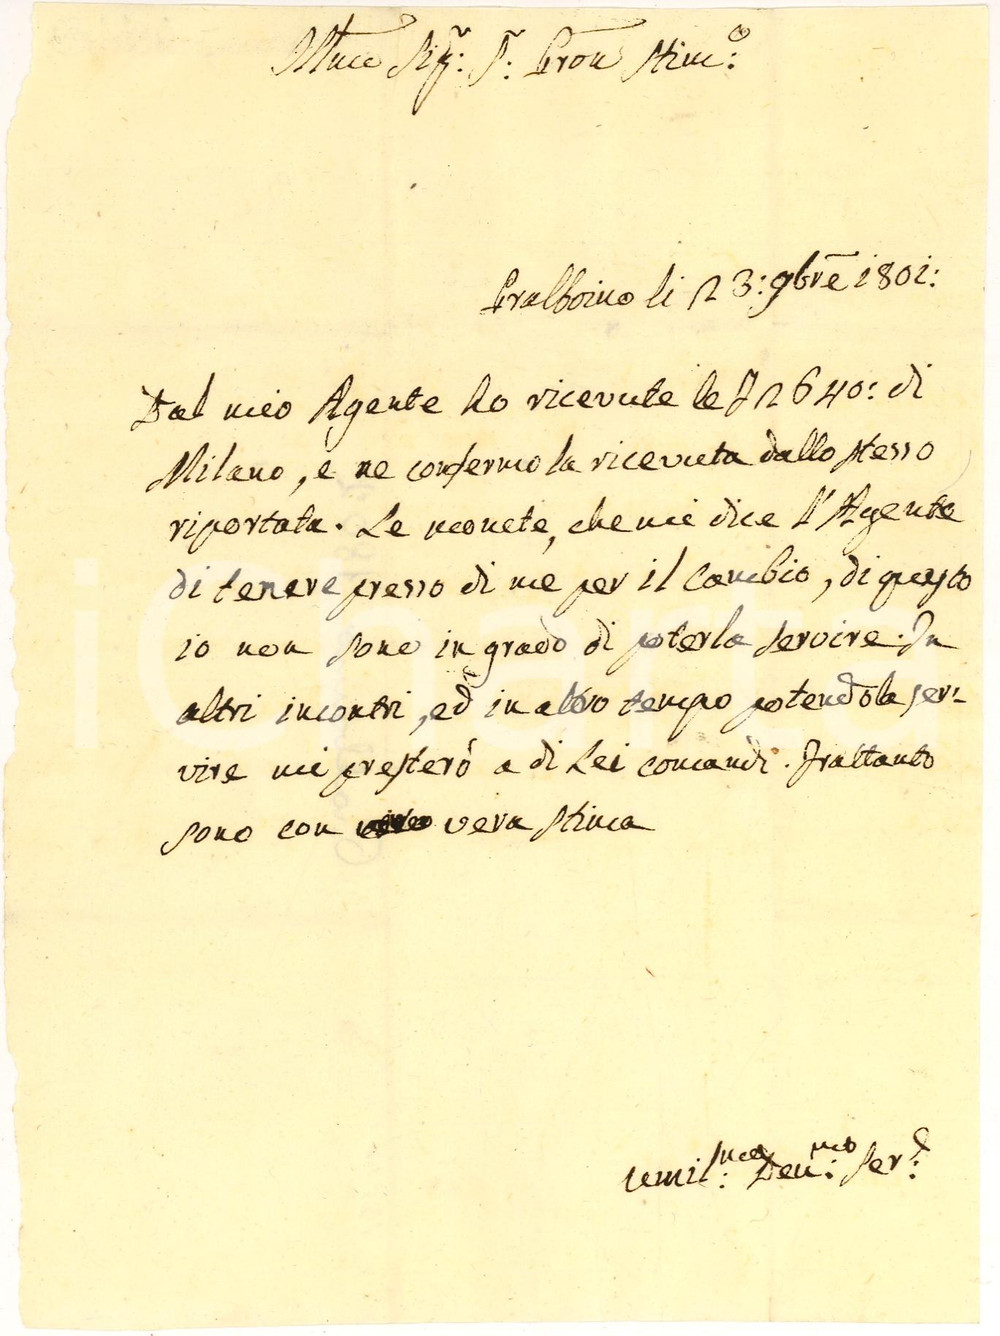 Sig.r Pron Stim.o
Pralboino li 23: 9bre 1801:
Dal mio Agente ho ricevute le 2640: di
Milano, e ne confermo la ricevuta dallo stesso
riportata. Le monete, che mi dice l'Agente
di tenere presso di me per il Cambio, di questo
io non sono in grado di poterla servire. In
altri incontri, ed in altro tempo potendola ser-
vire mi presterò a di Lei comandi. Frattanto
sono con vera stima
umil.mo Dev.mo Ser.e
iCharta